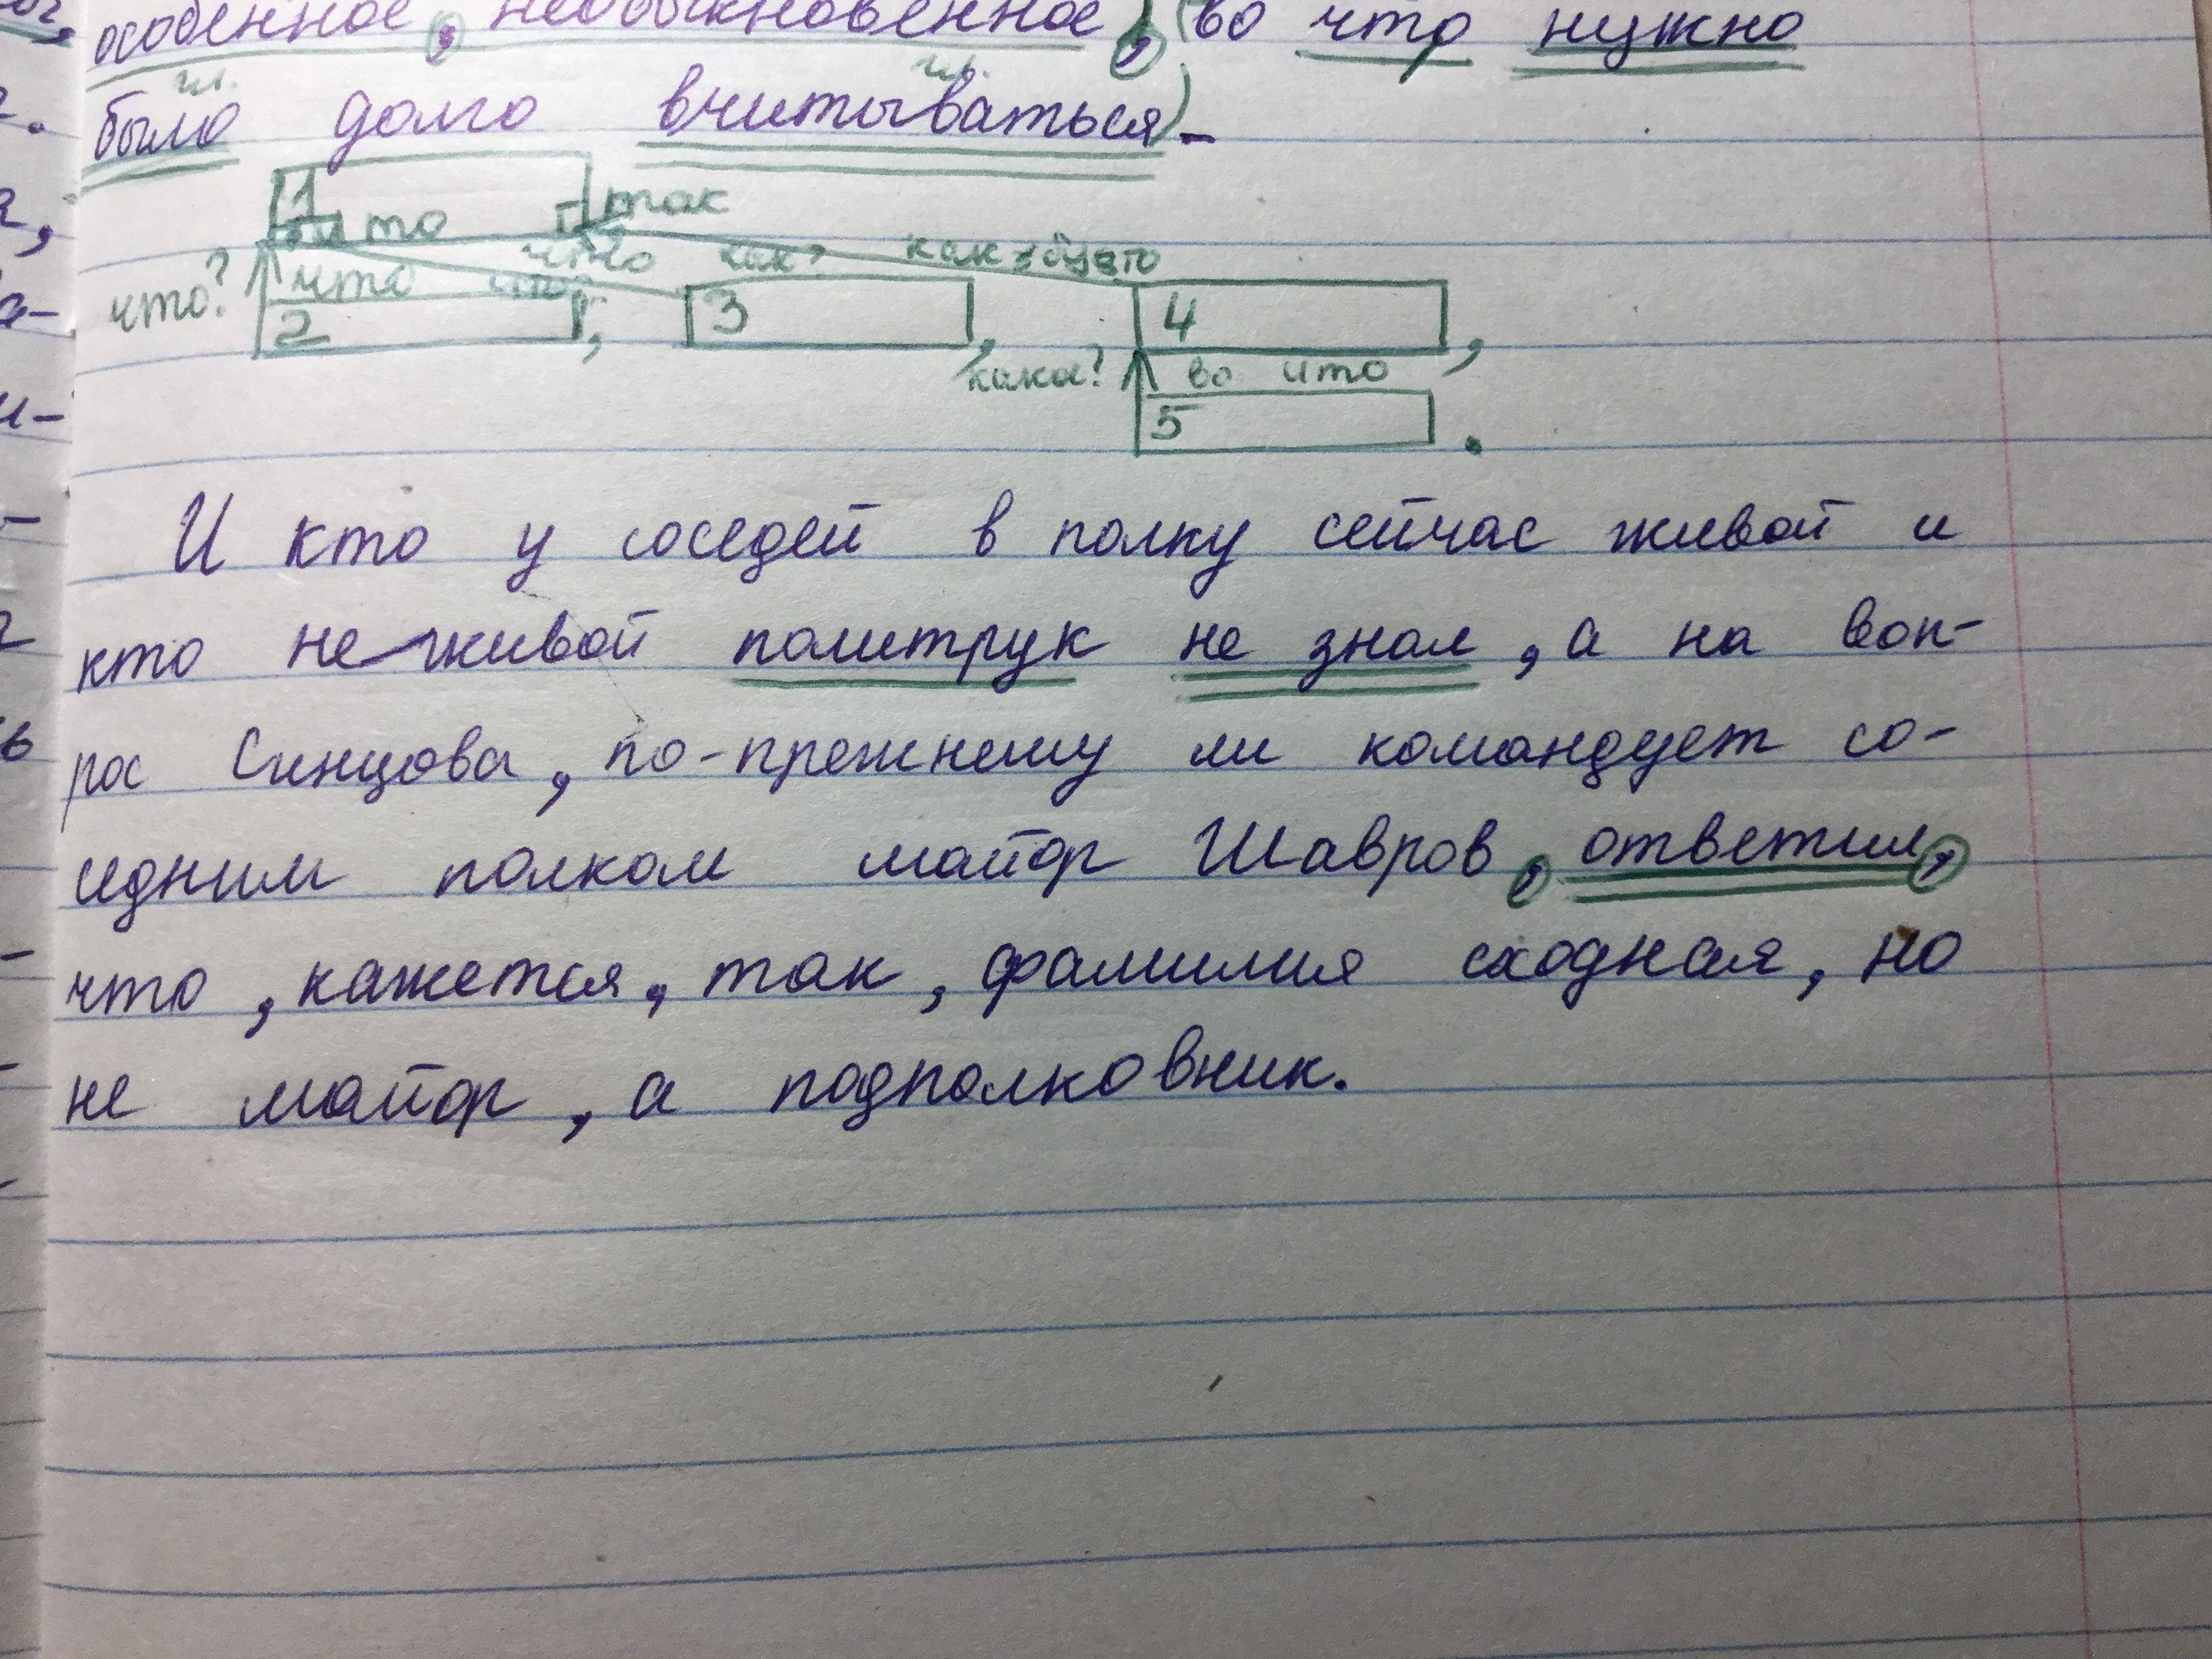 особенное, необыкновенное, (во что нужно
гл. гл.
было долго вчитываться).
1 то так
что что как? как будто
что? что
2 , 3 , 4 ,
какое? во что
5 .
И кто у соседей в полку сейчас живой и
кто не живой политрук не знал, а на воп-
рос Синцова, по-прежнему ли командует со-
седним полком майор Шавров, ответил,
что, кажется, так, фамилия сходная, но
не майор, а подполковник.